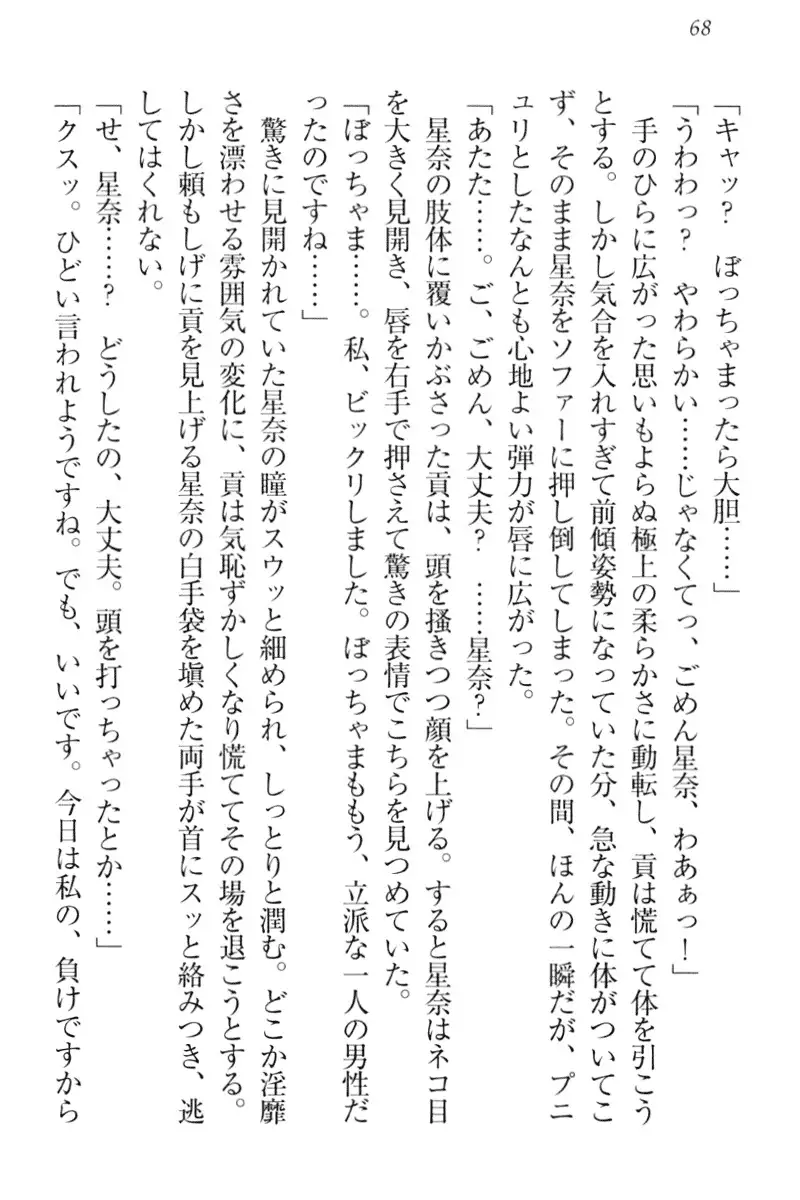 68
「キャッ？　ぼっちゃまったら大胆……」
「うわわっ？　やわらかい……じゃなくてっ、ごめん星奈、わあぁっ！」
　手のひらに広がった思いもよらぬ極上の柔らかさに動転し、貢は慌てて体を引こう
とする。しかし気合を入れすぎて前傾姿勢になっていた分、急な動きに体がついてこ
ず、そのまま星奈をソファーに押し倒してしまった。その間、ほんの一瞬だが、プニ
ュリとしたなんとも心地よい弾力が唇に広がった。
「あたた……。ご、ごめん、大丈夫？　……星奈？」
　星奈の肢体に覆いかぶさった貢は、頭を掻きつつ顔を上げる。すると星奈はネコ目
を大きく見開き、唇を右手で押さえて驚きの表情でこちらを見つめていた。
「ぼっちゃま……。私、ビックリしました。ぼっちゃまももう、立派な一人の男性だ
ったのですね……」
　驚きに見開かれていた星奈の瞳がスウッと細められ、しっとりと潤む。どこか淫靡
さを漂わせる雰囲気の変化に、貢は気恥ずかしくなり慌ててその場を退こうとする。
しかし頼もしげに貢を見上げる星奈の白手袋を塡めた両手が首にスッと絡みつき、逃
してはくれない。
「せ、星奈……？　どうしたの、大丈夫。頭を打っちゃったとか……」
「クスッ。ひどい言われようですね。でも、いいです。今日は私の、負けですから